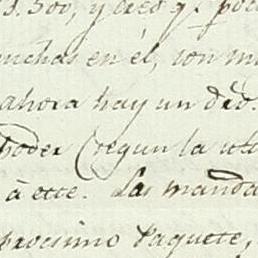 3.500, y creo q.e pod
muchas en él, con mu
ahora hay un dro.
poder (segun la ulti
à este. Las manda
procsimo Paquete,